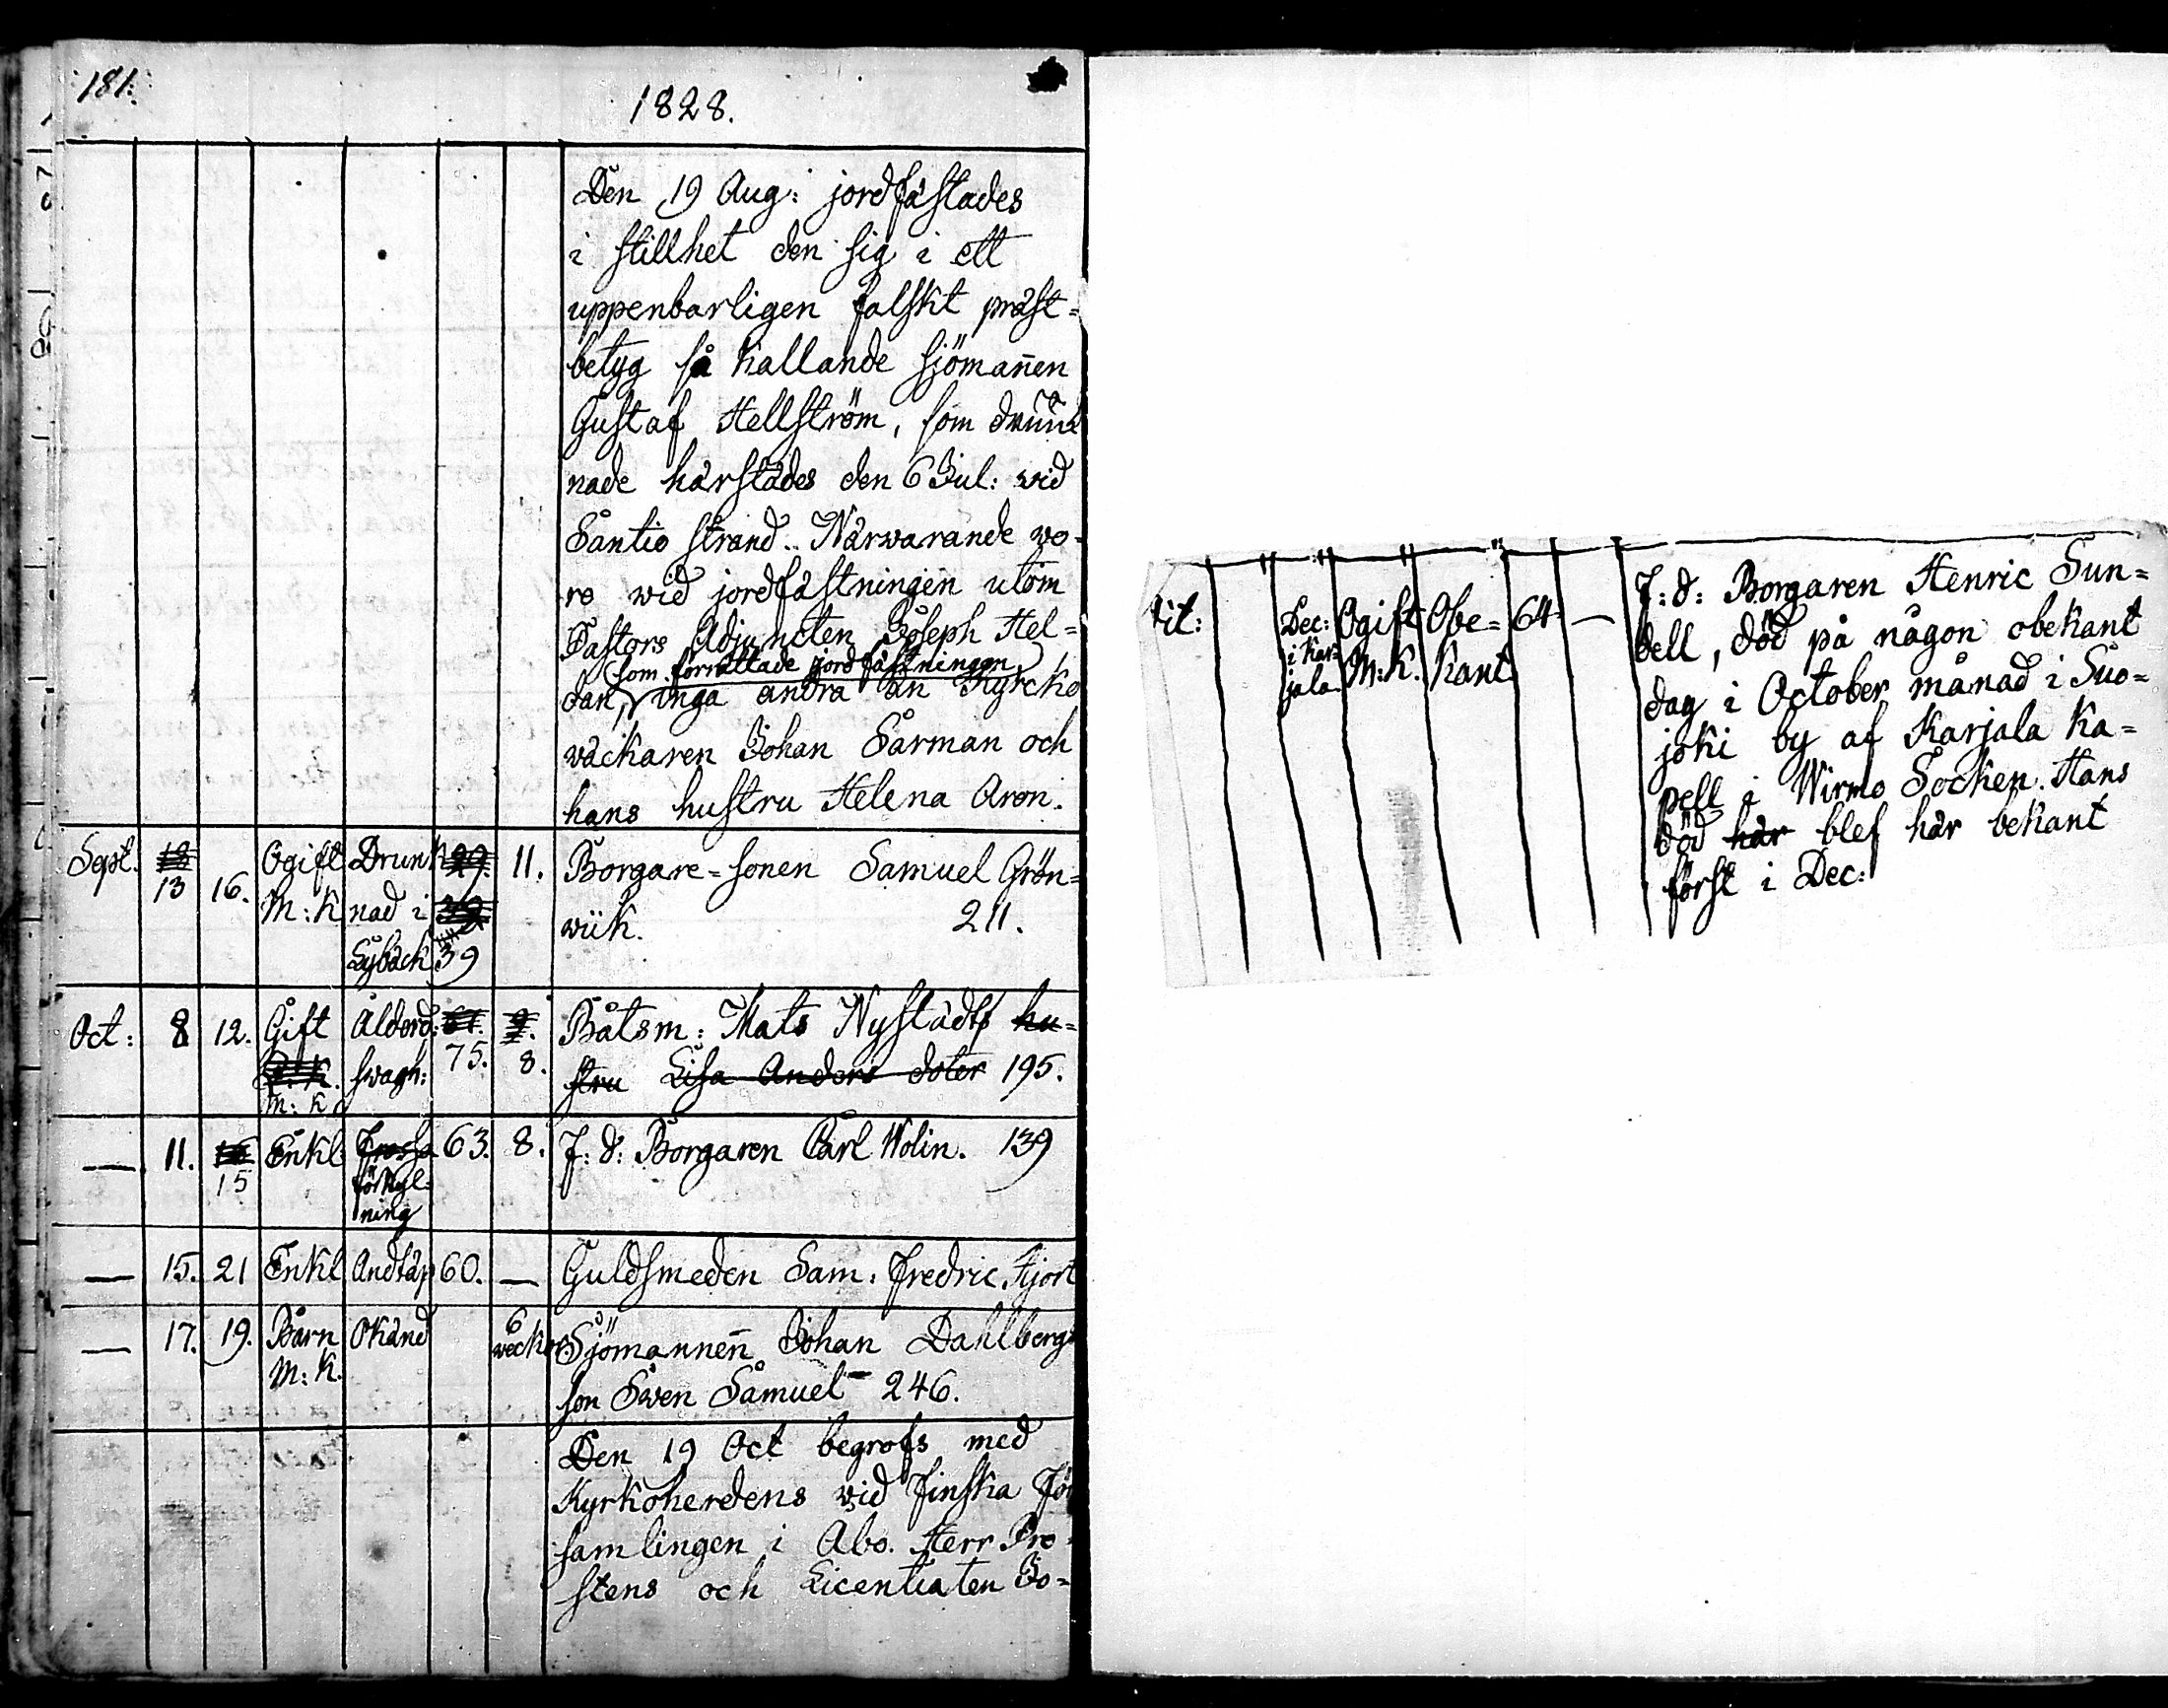 181.
1828.
Den 19 Aug: jordfästades
i stillhet den sig i ett
uppenbarligen falskt präst=
betyg så kallande sjöman̄en
Gustaf Hellström, som drunk
nade härstädes den 6 Jul: wid
Santio strand.. Närwarande wo-
ro wid jordfästningen utom
Pastors Adjuncten Joseph Hel=
(som förrättade jordfästningen)
dan, inga andra än Kyrcko
wäckaren Johan Sarman och
hans hustru Helena Aron.
Sept. 12 13 16. Ogift M: K Drunk nad i Lybäck 29. 39 39 11. Borgare=sonen Samuel Grön=
wiik. 211.
Oct: 8 12. Gift M: K. Ålderd: swagh: 75. 8. Båtsm: Mats Nystädts hu=
stru Lisa Anders doter 195.
— 11. 15 Enkl Frossa förkyl- ning 63. 8. F: d: Borgaren Carl Wolin. 139
— 15. 21 Enkl Andtäp 60. — Guldsmeden Sam. Fredric Hjort
— 17. 19. Barn M: K. Okänd 6 weckor Sjömannen̄ Johan Dahlbergs
son Swen Samuel 246.
Den 19 Oct begrofs med
Kyrkoherdens wid Finska För
samlingen i Abo. Herr Pro-
stens och Licentiaten Jo=
tit: Dec: i Kar- jala. Ogift M: K. Obe= kant 64 — F: d: Borgaren Henric Sun=
dell, död på någon obekant
dag i October månad i Suo=
joki by af Karjala Ka=
pell i Wirmo Socken. Hans
död här blef här bekant
först i Dec: